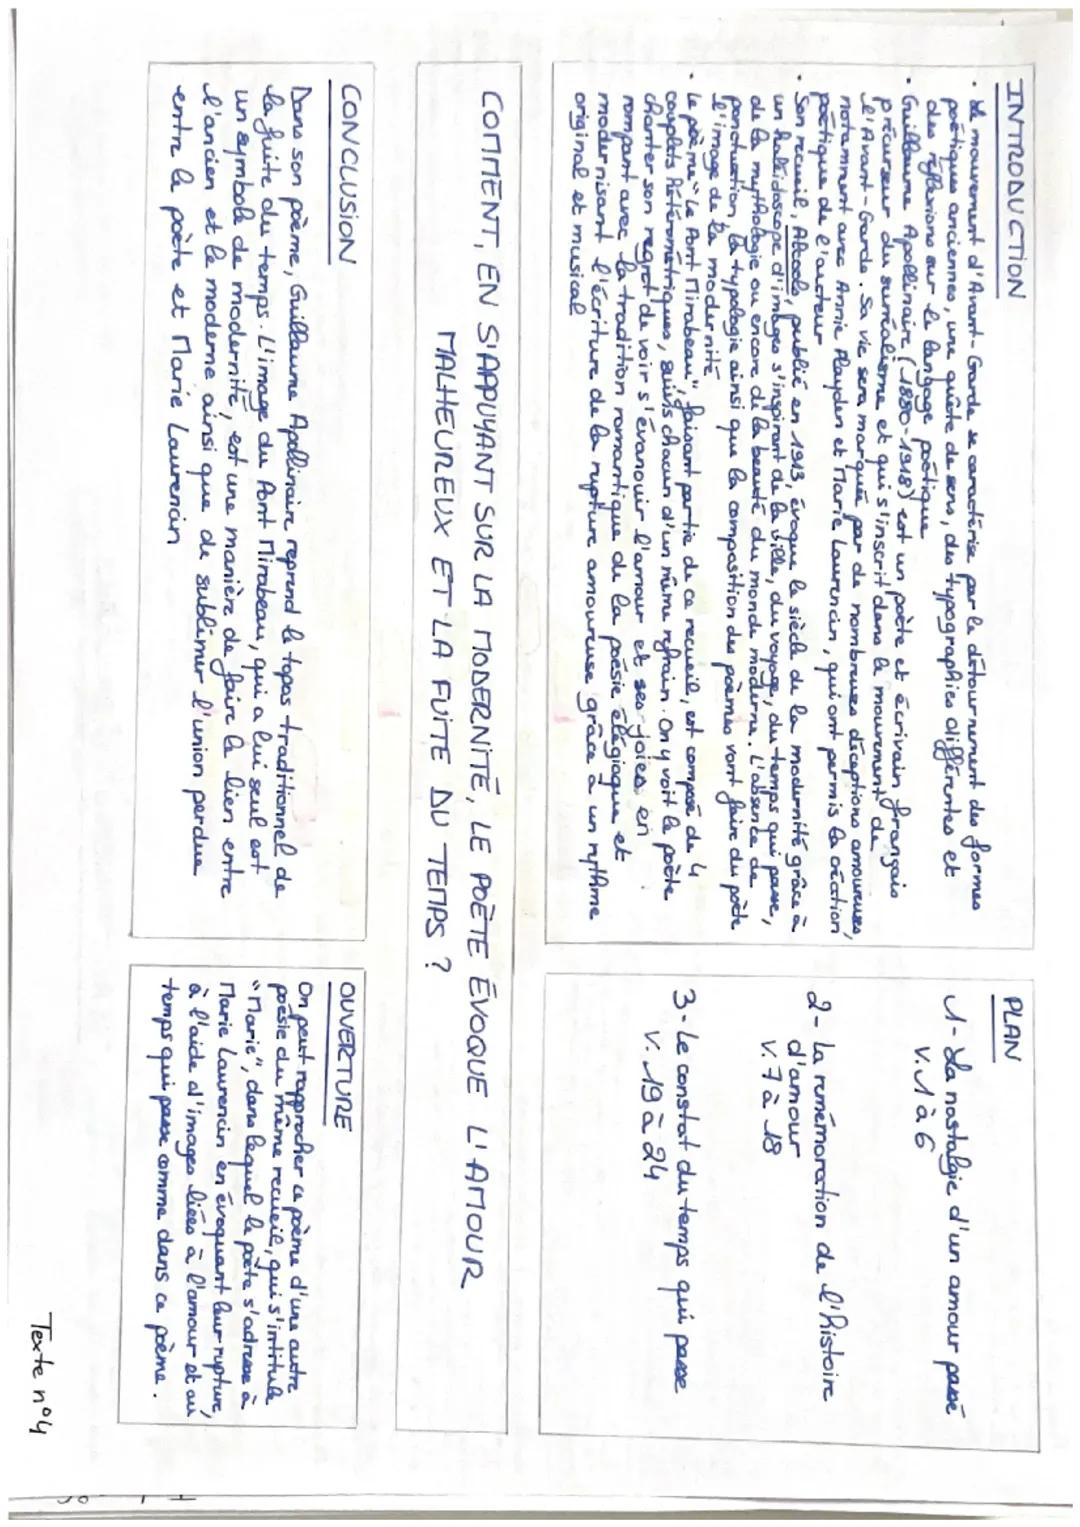 INTRODUCTION
• Le mouvement d'Avant-Garde se caractérise par le détournement des formes
poétiques anciennes, une quête de sens, des typographies différentes et
des réflexions sur le langage poétique
• Guillaume Apollinaire (1880-1918) est un poète et écrivain français
précurseur du surréalisme et qui s'inscrit dans le mouvement de
l'Avant-Garde. Sa vie sera marquée par de nombreuses déceptions amoureuses,
notamment avec Annie Playden et Marie Laurencin, qui ont permis la création
poétique de l'auteur
• Son recueil, Alcools, publié en 1913, évoque le siècle de la modernité grâce à
un kaléidoscope d'images s'inspirant de la ville, du voyage, du temps qui passe,
de la mythologie ou encore de la beauté du monde moderne. L'absence de
ponctuation, la typologie ainsi que la composition des poèmes vont faire du poète
l'image de la modernité
• Le poème "Le Pont Mirabeau", faisant partie de ce recueil, est composé de 4
couplets hétérométriques, suivis chacun d'un même refrain. On y voit le poète
chanter son regret de voir s'évanouir l'amour et ses joies en
rompant avec la tradition romantique de la poésie élégiaque et
modernisant l'écriture de la rupture amoureuse grâce à un rythme
original et musical
PLAN
1- La nostalgie d'un amour passé
v. 1 à 6
2- La remémoration de l'histoire
d'amour
v. 7 à 18
3- Le constat du temps qui passe
v. 19 à 24
COMMENT, EN S'APPUYANT SUR LA MODERNITÉ, LE POÈTE ÉVOQUE L'AMOUR
MALHEUREUX ET LA FUITE DU TEMPS ?
CONCLUSION
Dans son pòème, Guillaume Apollinaire reprend le topos traditionnel de
la fuite du temps. L'image du Pont Mirabeau, qui a lui seul est
un symbole de modernité, est une manière de faire le lien entre
l'ancien et le moderne ainsi que de sublimer l'union perdue
entre le poète et Marie Laurencin
OUVERTURE
On peut rapprocher ce poème d'une autre
poésie du même recueil, qui s'intitule
"Marie", dans lequel le poète s'adresse à
Marie Laurencin en évoquant leur rupture,
à l'aide d'images liées à l'amour et au
temps qui passe comme dans ce poème.
Texte n°4